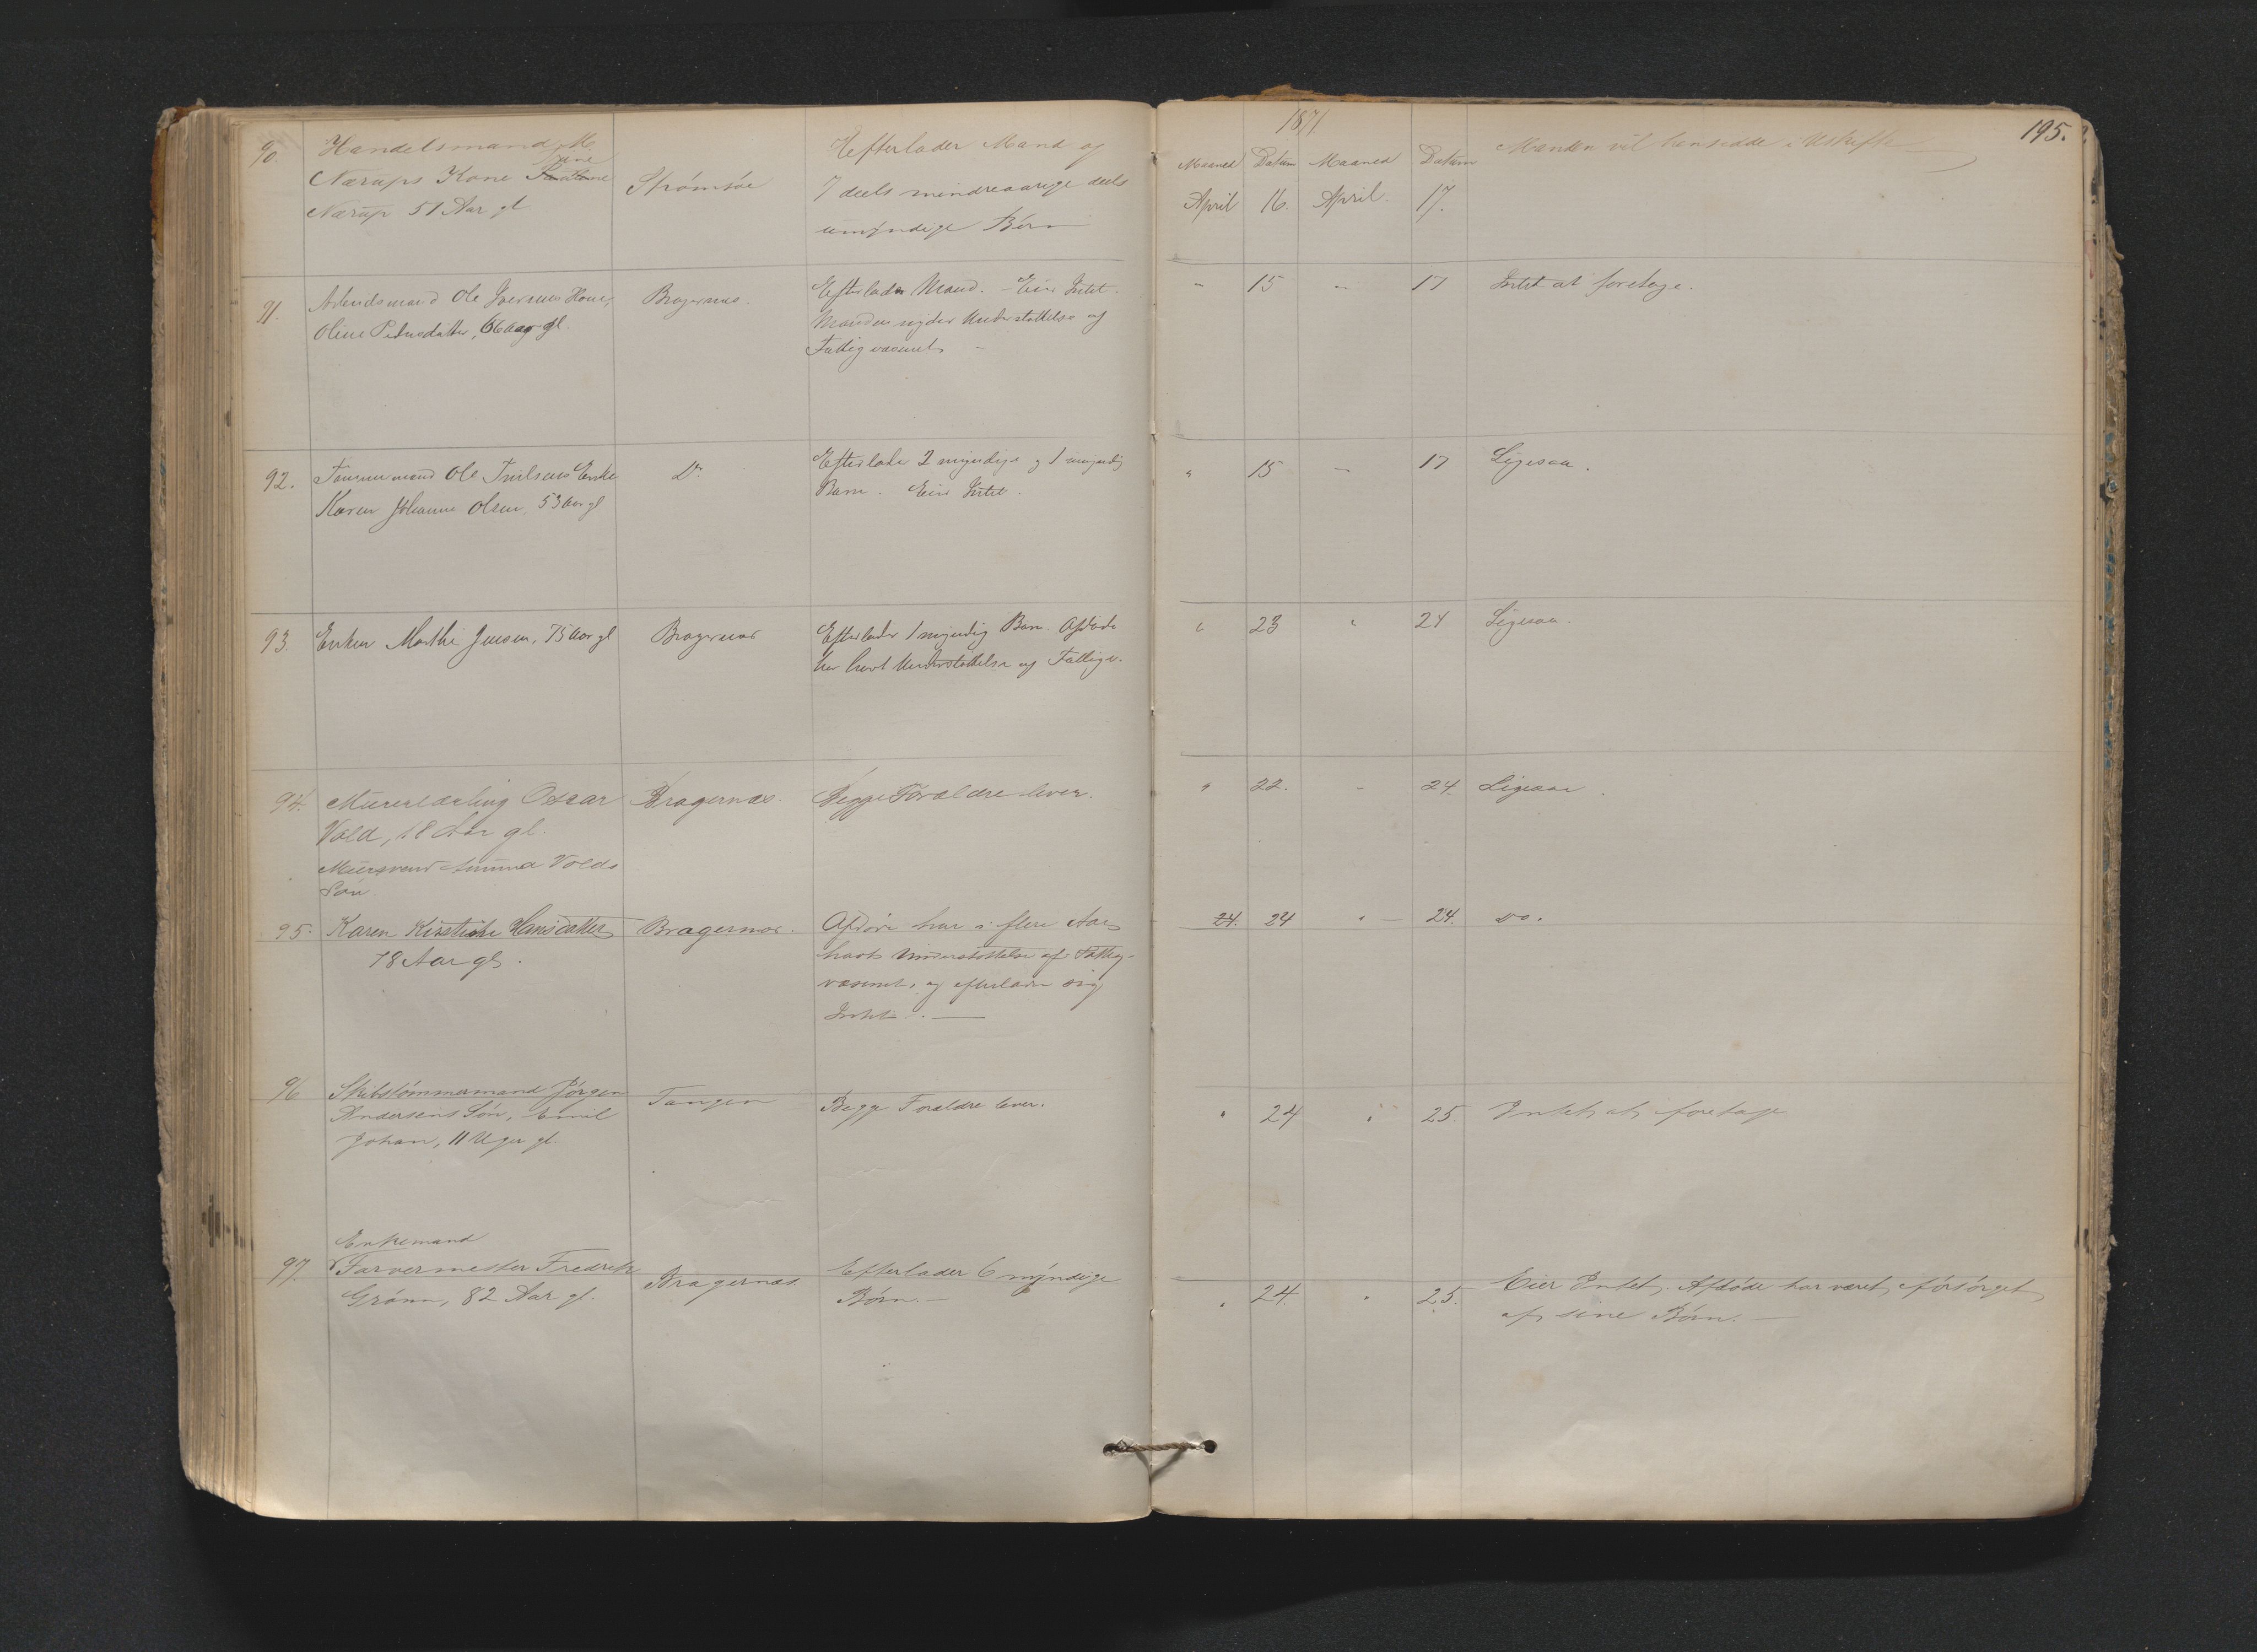 90. Handelsmand M.
Jane
Nærups Kone
Nærup 51 Aar gl
Strømsøe
Efterlader Mand og
7 deels mindreaarige deels
umyndige Börn
91. Arbeidsmand Ole Iversens Kone,
Oline Pedersdatter, 66 Aar gl
Bragernæs.
Efterlader Mand. - Eier Intet.
Manden nyder Understøttelse af
Fattigvæsenet -
92. Tømmermand Ole Enke
Karen Johanne Olsen, 53 Aar gl
Do
Efterlader 2 myndige og 1 umyndig
Barn. Eier Intet.
93. Enken Marthe Jensen, 75 Aar gl
Bragernæs
Efterlader 1 myndig Barn. Afdøde
har havt Understøttelse af Fattigv.
94. Murerlærling Oscar
Vold, 18 Aar gl.
Muursvend Volds
Søn.
Bragernæs.
Begge Forældre lever.
95. Karen Kirstine Hansdatter
78 Aar gl.
Bragernæs.
Afdøde har i flere Aar
havt Understøttelse af Fattig-
væsenet, og efterlader sig
Intet. —
96 Skibstømmermand Jørgen
Andersens Søn, Emil
Johan, 11 Uger gl.
Tangen
Begge Forældre lever.
Enkemand
97. Farvermester Fredrik
Grønn, 82 Aar gl.
Bragernæs
Efterlader 6 myndige
Børn. —
1871
195.
Maaned Datum Maaned Datum
Manden vil hensidde i Uskifte
April 16. April. 17.
" 15 " 17 Intet at foretage.
" 15 " 17 Ligesaa.
" 23 " 24 Ligesaa.
" 22. " 24. Ligesaa.
24. 24 " 24. Do.
" 24 " 25. Intet at foretage
" 24. " 25. Eier Intet. Afdøde har været forsørget
af sine Børn. —